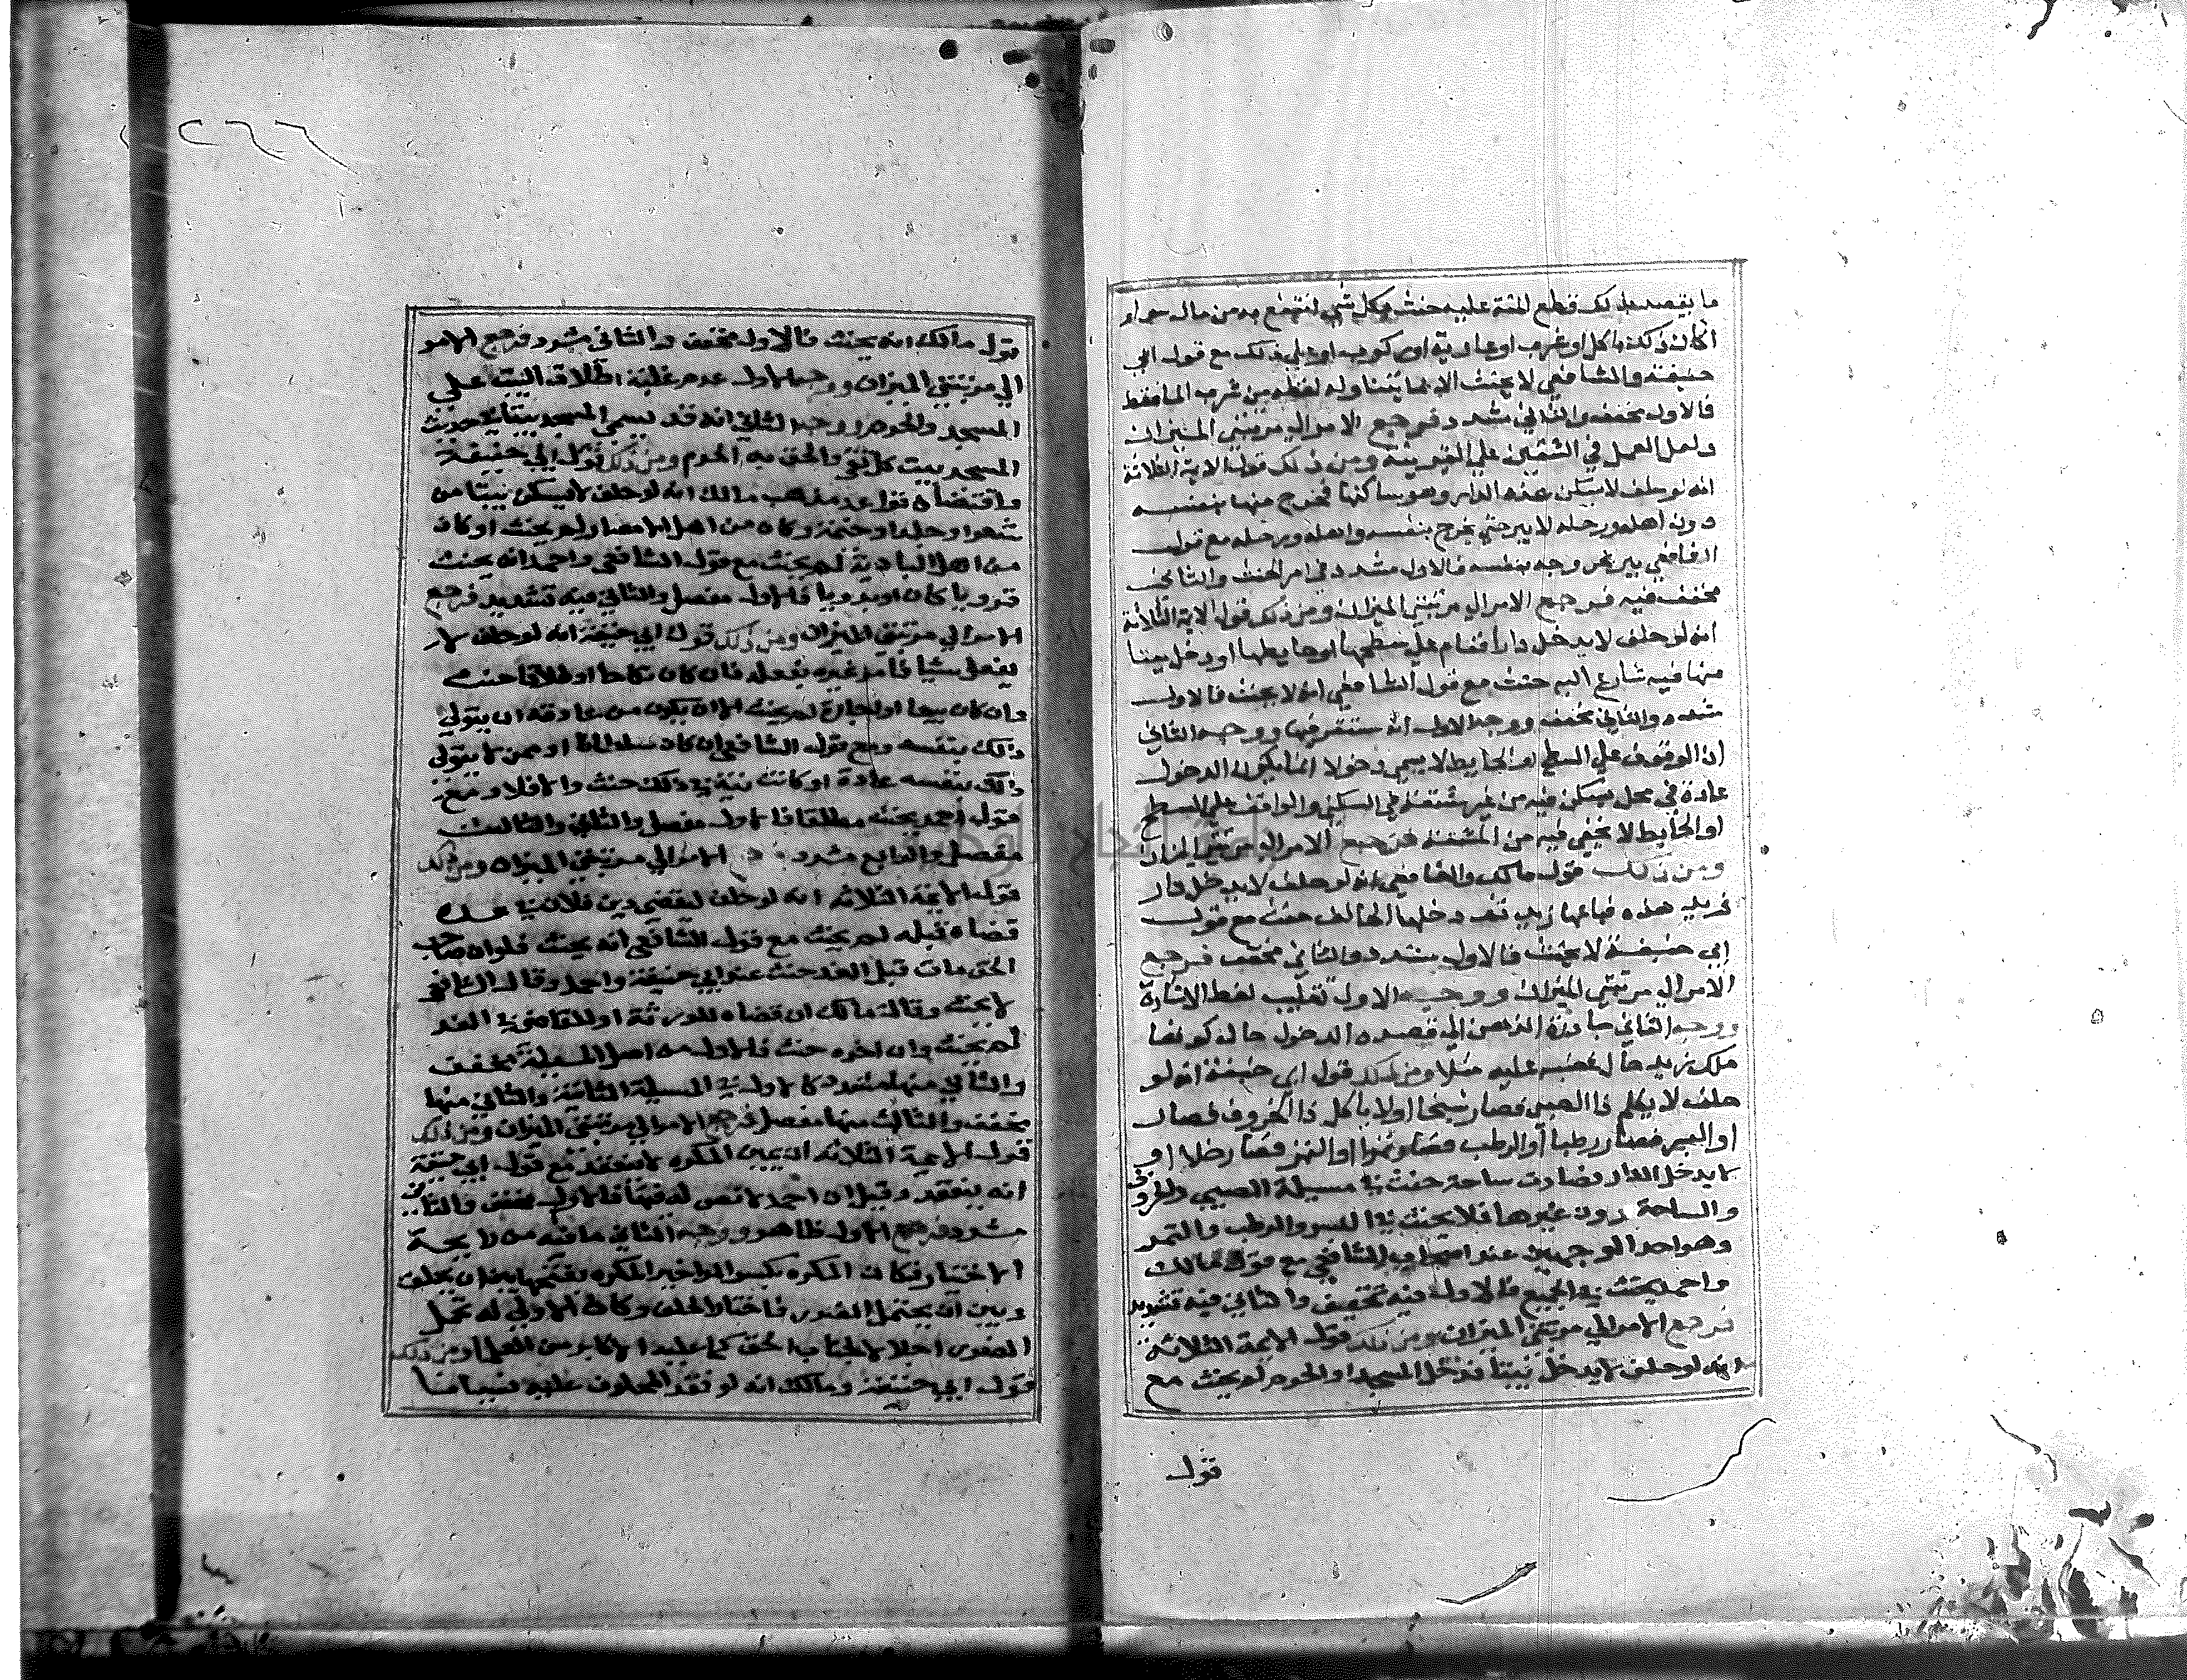 ما يقصد بذلك قطع المنة عليه حنث وكل شي انتفع به من ماله سواء
اكان ذلك باكل او شرب او عارية او ركوب او غير ذلك مع قول ابي
حنيفة والشافعي لا يحنث الا بما يتناوله لفظه من شرب الماء فقط
فالاول مخفف والثاني مشدد فرجع الامر الي مرتبتي الميزان
ولعل العمل في الشقين علي القرينة ومن ذلك قول الايمة الثلاثة
انه لو حلف لا يسكن هذه الدار وهو ساكنها فخرج منها بنفسه
دون اهله ورحله لا يبر حتي يخرج بنفسه واهله ورحله مع قول
الشافعي يبر بخروجه بنفسه فالاول مشدد في امر الحنث والثاني
مخفف فيه فرجع الامر الي مرتبتي الميزان ومن ذلك قول الايمة الثلاثة
انه لو حلف لا يدخل دارا فقام علي سطحها او حايطها او دخل بيتا
منها فيه شارع اليه حنث مع قول الشافعي انه لا يحنث فالاول
مشدد والثاني مخفف ووجه الاول انه ستقر فيها ووجه الثاني
ان الوقوف علي السطح او الحايط لا يسمي دخولا انما يكون الدخول
عادة في محل يسكن فيه من غير مشقة في السكني والواقف علي السطح
او الحايط لا يخفي فيه من المشقة فرجع الامر الي مرتبتي الميزان
ومن ذلك قول مالك والشافعي انه لو حلف لا يدخل دار
زيد هذه فباعها زيد ثم دخلها الحالف حنث مع قول
ابي حنيفة لا يحنث فالاول مشدد والثاني مخفف فرجع
الامر الي مرتبتي الميزان ووجه الاول تغليب لفظ الاشارة
ووجه الثاني مبادرة الذهن الي قصده الدخول حال كونها
ملك زيد حال غضبه عليه مثلا ومن ذلك قول ابي حنيفة انه لو
حلف لا يكلم ذا الصبي فصار شيخا اولا ياكل ذا الخروف فصار
او البسر فصار رطبا او الرطب فصار تمرا او التمر فصار خلا او
لا يدخل الدار فصارت ساحة حنث في مسيلة الصبي والخروف
والساحة دون غيرها فلا يحنث في البسر والرطب والتمر
وهو احد الوجهين عند اصحاب الشافعي مع قول مالك
واحمد يحنث في الجميع فالاول فيه تخفيف والثاني فيه تشديد
فرجع الامر الي مرتبتي الميزان ومن ذلك قول الايمة الثلاثة
انه لو حلف لا يدخل بيتا فدخل المسجد او الحرم لم يحنث مع
قول
قول مالك انه يحنث فالاول مخفف والثاني مشدد فرجع الامر
الي مرتبتي الميزان ووجه الاول عدم غلبة اطلاق البيت علي
المسجد والحرم ووجه الثاني انه قد يسمي المسجد بيتا في حديث
المسجد بيت كل تقي والحق به الحرم ومن ذلك قول ابي حنيفة
واقتضاه قواعد مذهب مالك انه لو حلف لا يسكن بيتا من
شعر او جلد او خيمة وكان من اهل الامصار لم يحنث او كان
من اهل البادية لم يحنث مع قول الشافعي واحمد انه يحنث
قرويا كان او بدويا فالاول مفصل والثاني فيه تشديد فرجع
الامر الي مرتبتي الميزان ومن ذلك قول ابي حنيفة انه لو حلف لا
يفعل شيا فامر غيره بفعله فان كان نكاحا او طلاقا حنث
وان كان بيعا او اجارة لم يحنث الا ان يكون من عادته ان يتولي
ذلك بنفسه ومع قول الشافعي ان كان سلطانا او ممن لا يتولي
ذلك بنفسه عادة او كانت نيته في ذلك حنث والا فلا ومع
قول احمد يحنث مطلقا فالاول مفصل والثاني والثالث
مفصل والرابع مشدد الامر الي مرتبتي الميزان ومن ذلك
قول الايمة الثلاثة انه لو حلف ليقضين دين فلان في غد
قضاه قبله لم يحنث مع قول الشافعي انه يحنث فلو ان صاحب
الحق مات قبل الغد حنث عند ابي حنيفة واحمد وقال الشافعي
لا يحنث وقال مالك ان قضاه للورثة او للقاضي في الغد
لم يحنث وان اخره حنث فالاول من اصل المسيلة مخفف
والثاني منها مشدد كالاول في المسيلة الثانية والثاني منها
مخفف والثالث منها مفصل فرجع الامر الي مرتبتي الميزان ومن ذلك
قول الايمة الثلاثة ان يمين المكره لا ينعقد مع قول ابي حنيفة
انه ينعقد وقيل ان احمد لا نص له فيها فالاول مخفف والثاني
مشدد فرجع الاول ظاهر ووجه الثاني ما فيه من رايحة
الاختيار فكان المكره بكسر الراء خير المكره بفتحها بين ان يحلف
وبين ان يحتمل الضرر فاختار الحلف وكان الاولي له تحمل
الضرر اجلالا لجناب الحق كما عليه الاكابر من العلما ومن ذلك
قول ابي حنيفة ومالك انه لو فعل المحلوف عليه نسيانا